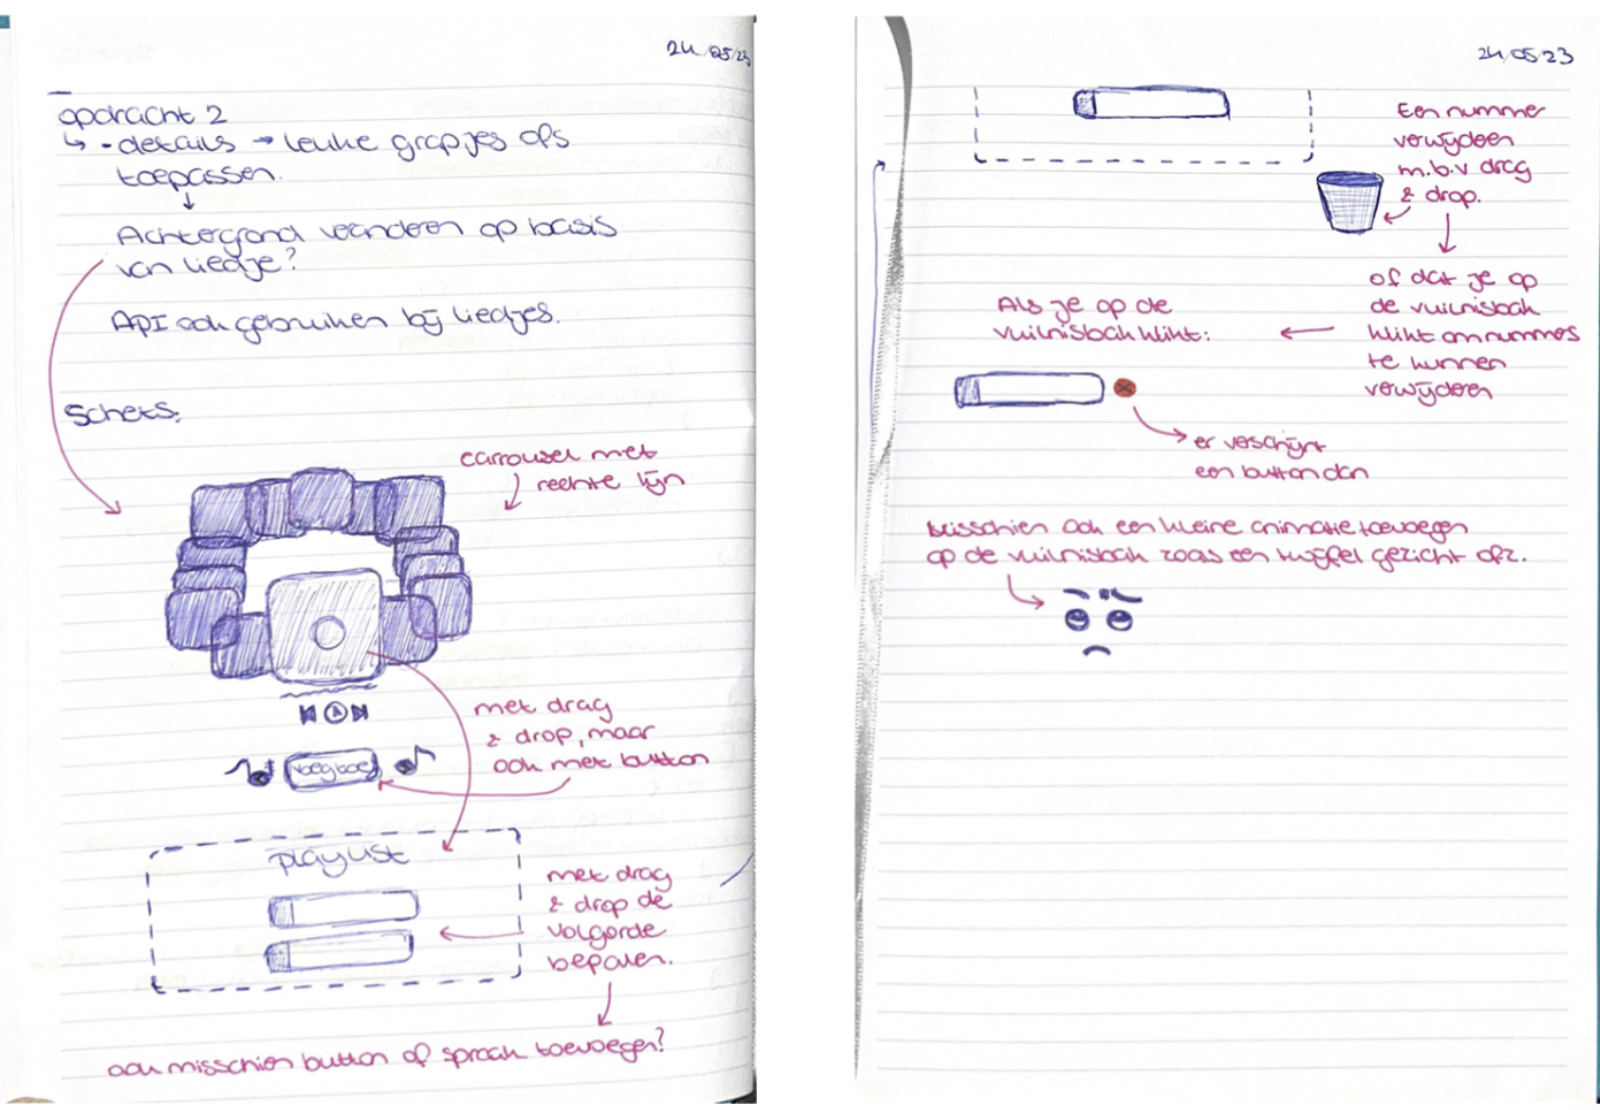 24/05/23
opdracht 2
↳ - details → leuke grapjes ofs
toepassen.
↓
Achtergrond veranderen op basis
van liedje?
API ook gebruiken bij liedjes.
Schets:
carrousel met
rechte lijn
met drag
& drop, maar
ook met button
voeg toe
playlist
met drag
& drop de
volgorde
bepalen.
ook misschien button of spraak toevoegen?
24/05/23
Een nummer
verwijderen
m.b.v drag
& drop.
of dat je op
de vuilnisbak
klikt om nummers
te kunnen
verwijderen
Als je op de
vuilnisbak klikt:
er verschijnt
een button dan
Misschien ook een kleine animatie toevoegen
op de vuilnisbak zoals een knuffel gezicht ofz.